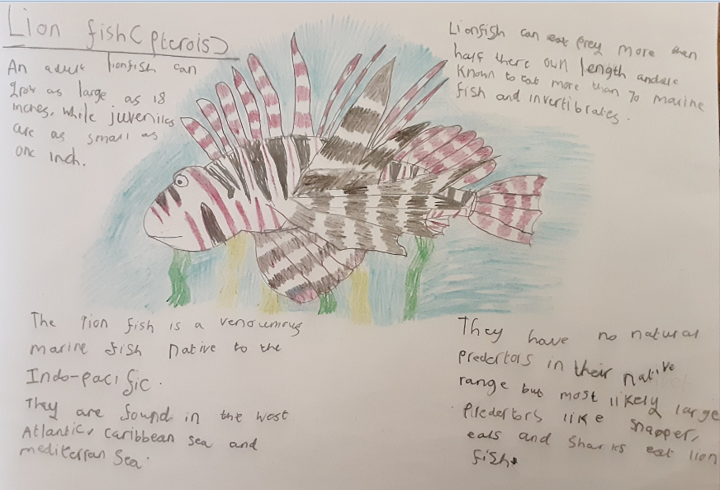 Lion fish (pterois)
An adult lionfish can
grow as large as 18
inches, while juveniles
are as small as
one inch.
Lionfish can eat prey more than
half there own length and are
known to eat more than 70 marine
fish and invertibrates.
The lion fish is a venouming
marine fish native to the
Indo-pacific.
They are found in the west
Atlantic, Caribbean sea and
mediterran sea.
They have no natural
predertors in their native
range but most likely large
Predertors like snapper,
eals and sharks eat lion
fish.